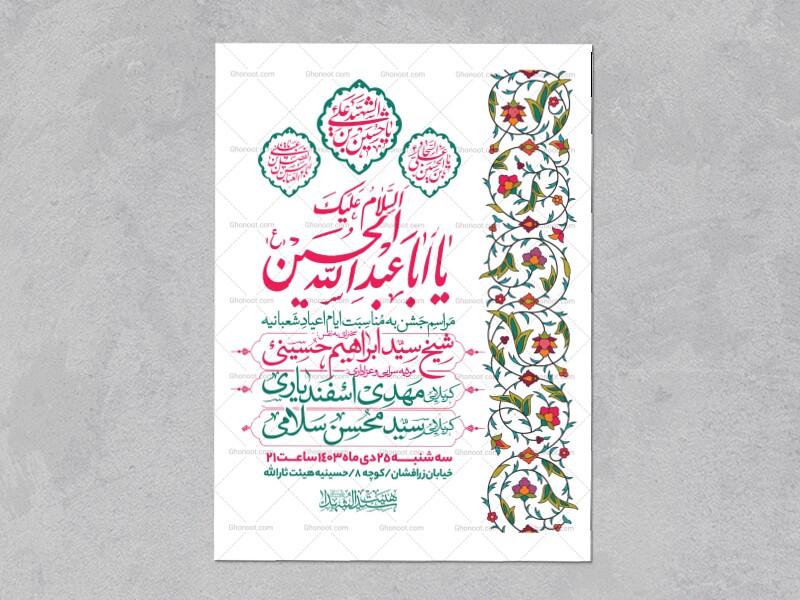 یا حسین بن علی الشهید
السلام علیک
یا اباعبدالله الحسین (ع)
مراسم جشن به مناسبت ایام اعیاد شعبانیه
سخنرانی به نفس:
شیخ سید ابراهیم حسینی
مرثیه سرایی و عزاداری:
کربلایی مهدی اسفندیاری
کربلایی سید محسن سلامی
سه شنبه ۲۵ دی ماه ۱۴۰۳ ساعت ۲۱
خیابان زرافشان / کوچه ۸ / حسینیه هیئت ثارالله
هیئت سیدالشهدا
Ghonoot.com